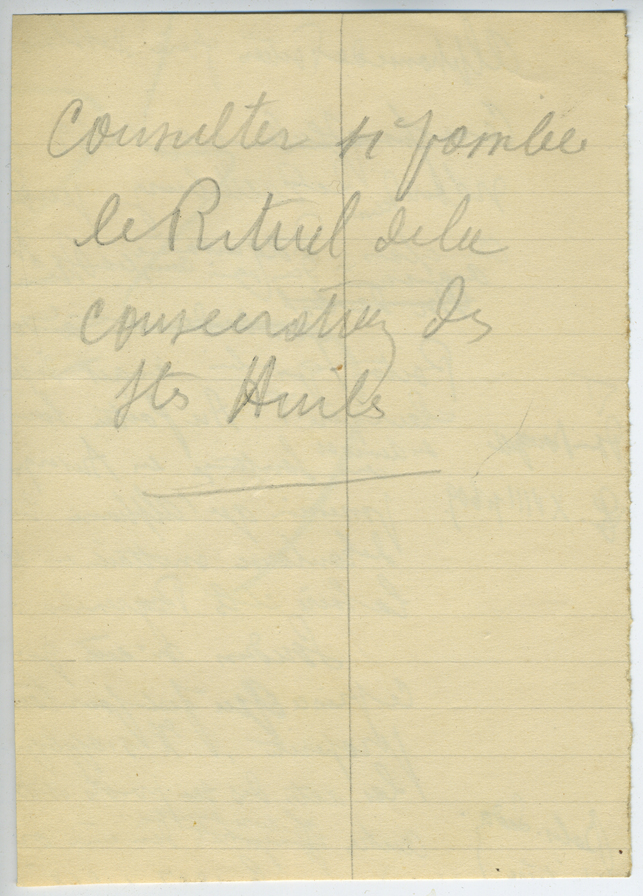 Consulter si possible
le Rituel de la
consecration des
Stes Huiles